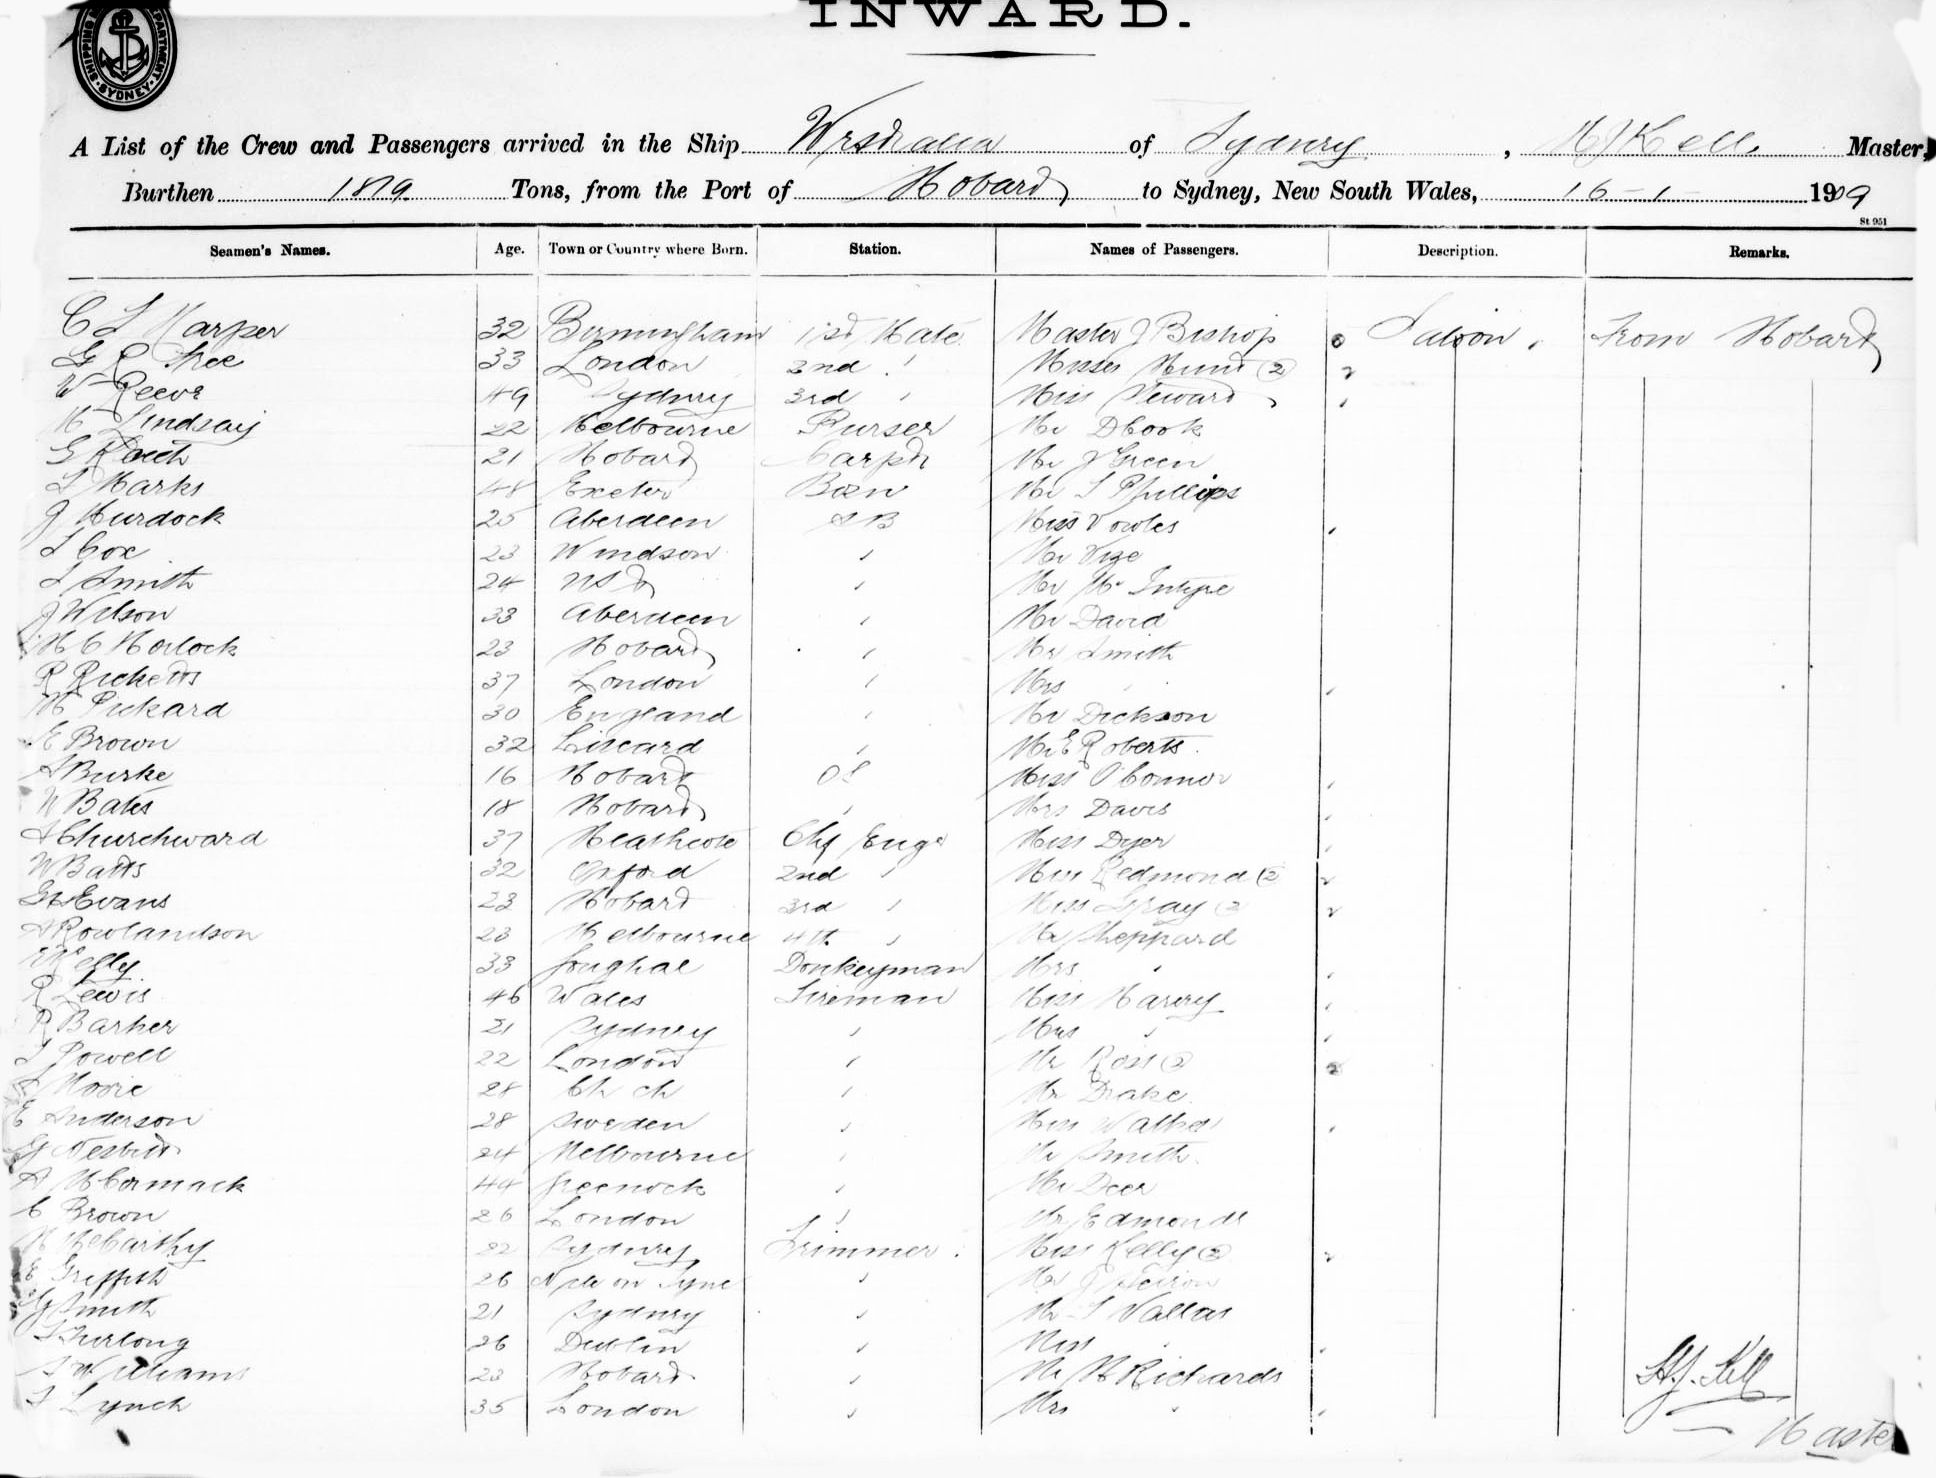 INWARD.
SHIPPING DEPARTMENT SYDNEY
A List of the Crew and Passengers arrived in the Ship Westralia of Sydney, H J Kell Master,
Burthen 1819 Tons, from the Port of Hobart to Sydney, New South Wales, 16-1-1909
St 951
Seamen's Names. Age. Town or Country where Born. Station. Names of Passengers. Description. Remarks.
C L Harper 32 Birmingham 1st Mate Master J Bishop Saloon From Hobart
G R Free 33 London 2nd " Misses Hunt (2)
W Reeve 49 Sydney 3rd " Miss Steward
H Lindsay 22 Melbourne Purser Mr D Cook
G 21 Hobart Carptr Mr J Green
L Marks 48 Exeter Bosn Mr S Phillips
J Murdock 25 Aberdeen AB Miss Vowles
L Cox 23 Windsor " Mr Vize
S Smith 24 " Mr McIntyre
J Wilson 33 Aberdeen " Mr David
H C Horlock 23 Hobart " Mr Smith
R Ricketts 37 London " Mrs "
H Pickard 30 England " Mr Dickson
E Brown 32 Liscard " Mr E Roberts
A Burke 16 Hobart OS Miss O'Connor
W Bates 18 Hobart " Mrs Davis
A Churchward 37 Heathcote Chf Engr Miss Dyer
W Batts 32 Oxford 2nd " Miss Redmond (2)
Evans 23 Hobart 3rd " Miss Gray (2)
A Rowlandson 23 Melbourne 4th " Mr Sheppard
Kelly 33 Youghal Donkeyman Mrs "
R Lewis 46 Wales Fireman Miss Harry
R Barker 21 Sydney " Mrs "
J Powell 22 London " Mr Ross (2)
Moore 28 Ch ch " Mr Drake
E Anderson 28 Sweden " Miss Walker
G Nesbitt 24 Melbourne " Mr Smith
A McCormack 44 Greenock " Mr Deer
C Brown 26 London " Mr Edmonds
H McCarthy 22 Sydney Trimmer Miss Kelly (2)
E Griffith 26 on Tyne "
G Smith 21 Sydney " Mr
Furlong 26 Dublin " Miss
Williams 23 Hobart " Mr H Richards
Lynch 35 London " Mrs "
H.J. Kell
Master